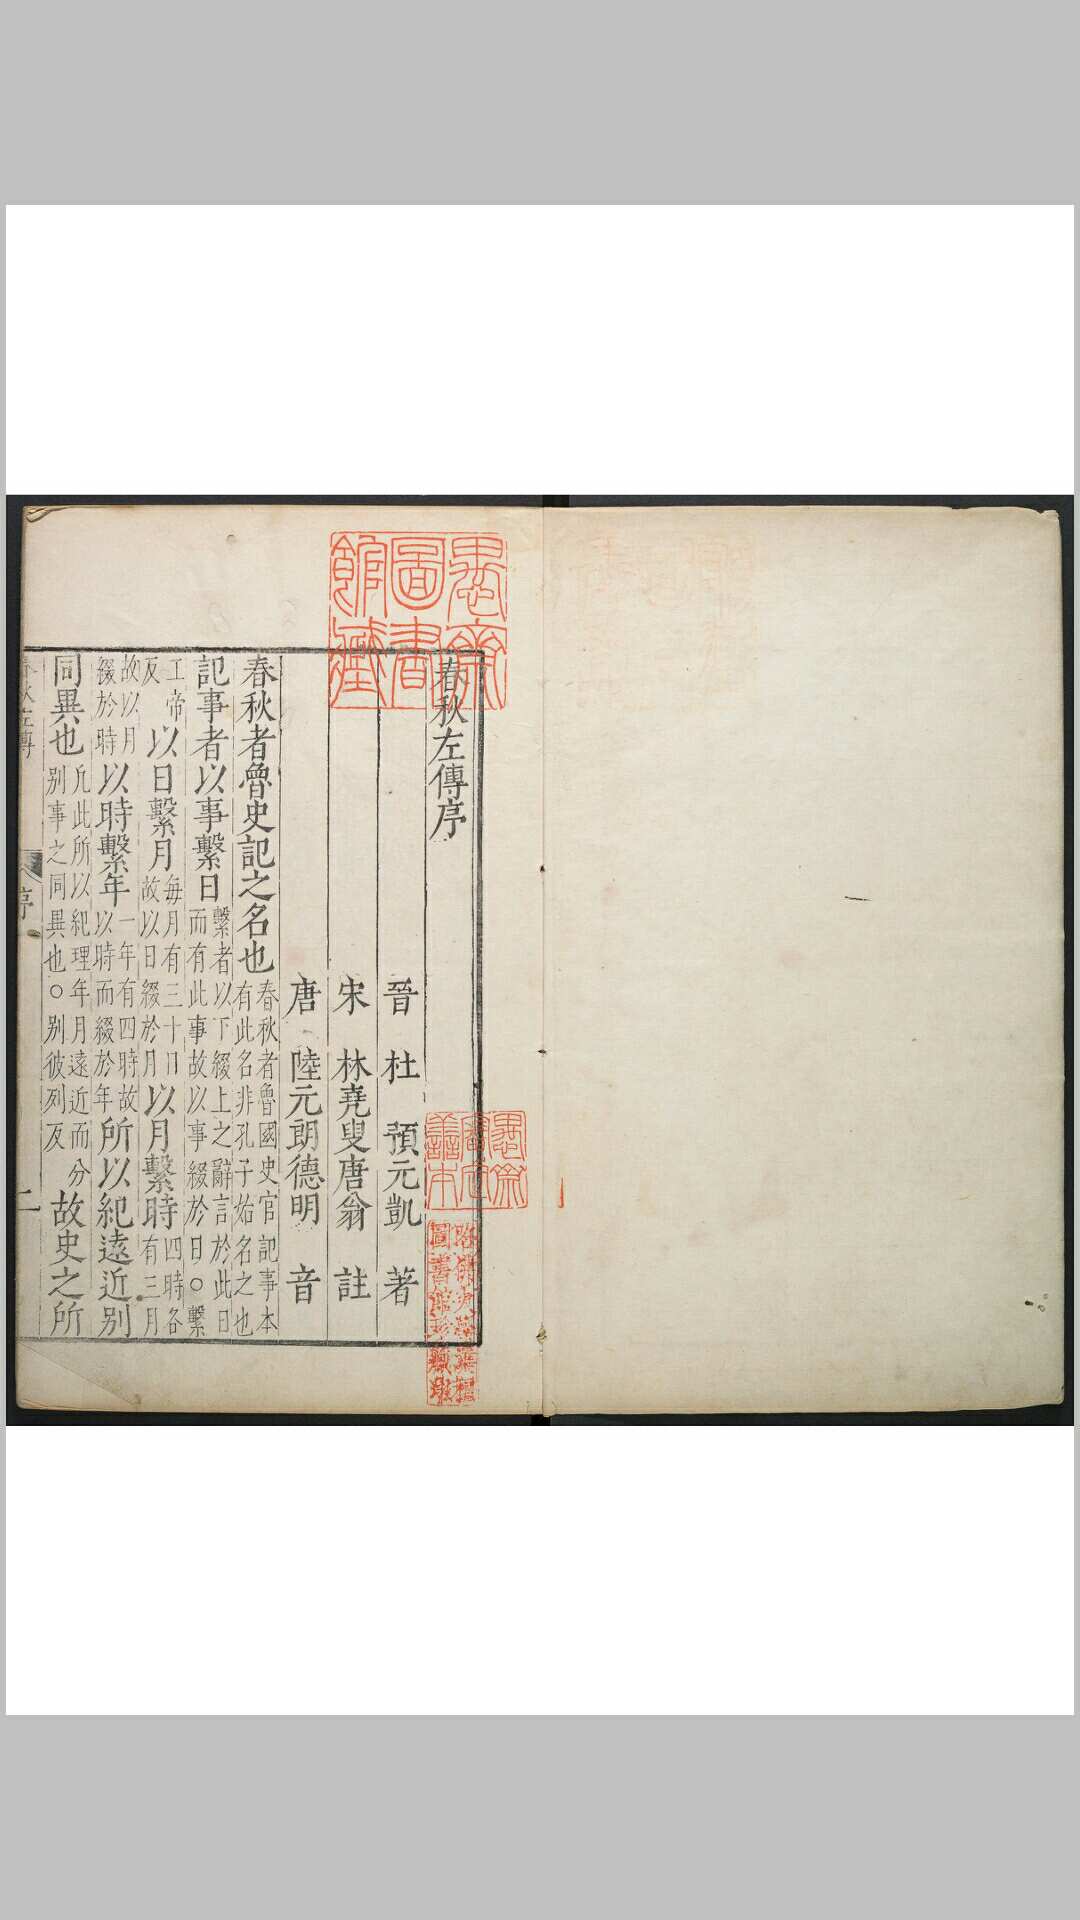 春秋左傳序
晉 杜 預元凱 著
宋 林堯叟唐翁 註
唐 陸元朗德明 音
春秋者魯史記之名也春秋者魯國史官記事本有此名非孔子始名之也
記事者以事繫日繫者以下綴上之辭言於此日而有此事故以事綴於日○繫
工帝反以日繫月每月有三十日故以日綴於月以月繫時四時各有三月
故以月綴於時以時繫年一年有四時故以時而綴於年所以紀遠近別
同異也凡此所以紀理年月遠近而分別事之同異也○别彼列反故史之所
春秋左傳
序
一
愚齋圖書館藏
愚齋審定善本